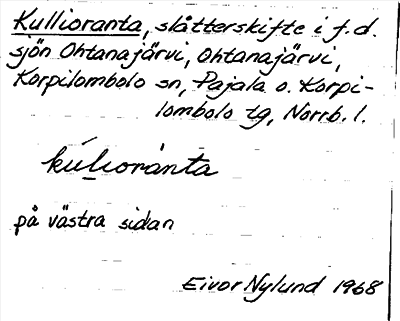 Kullioranta, slåtterskifte i f.d.
sjön Ohtanajärvi, Ohtanajärvi,
Korpilombolo sn, Pajala o. Korpi-
lombolo tg, Norrb. l.
på västra sidan
Eivor Nylund 1968